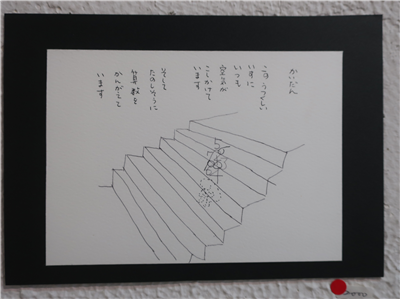 かいだん
いすに
いつも
空気が
こしかけて
います
そして
たのしそうに
算数を
かんがえて
います